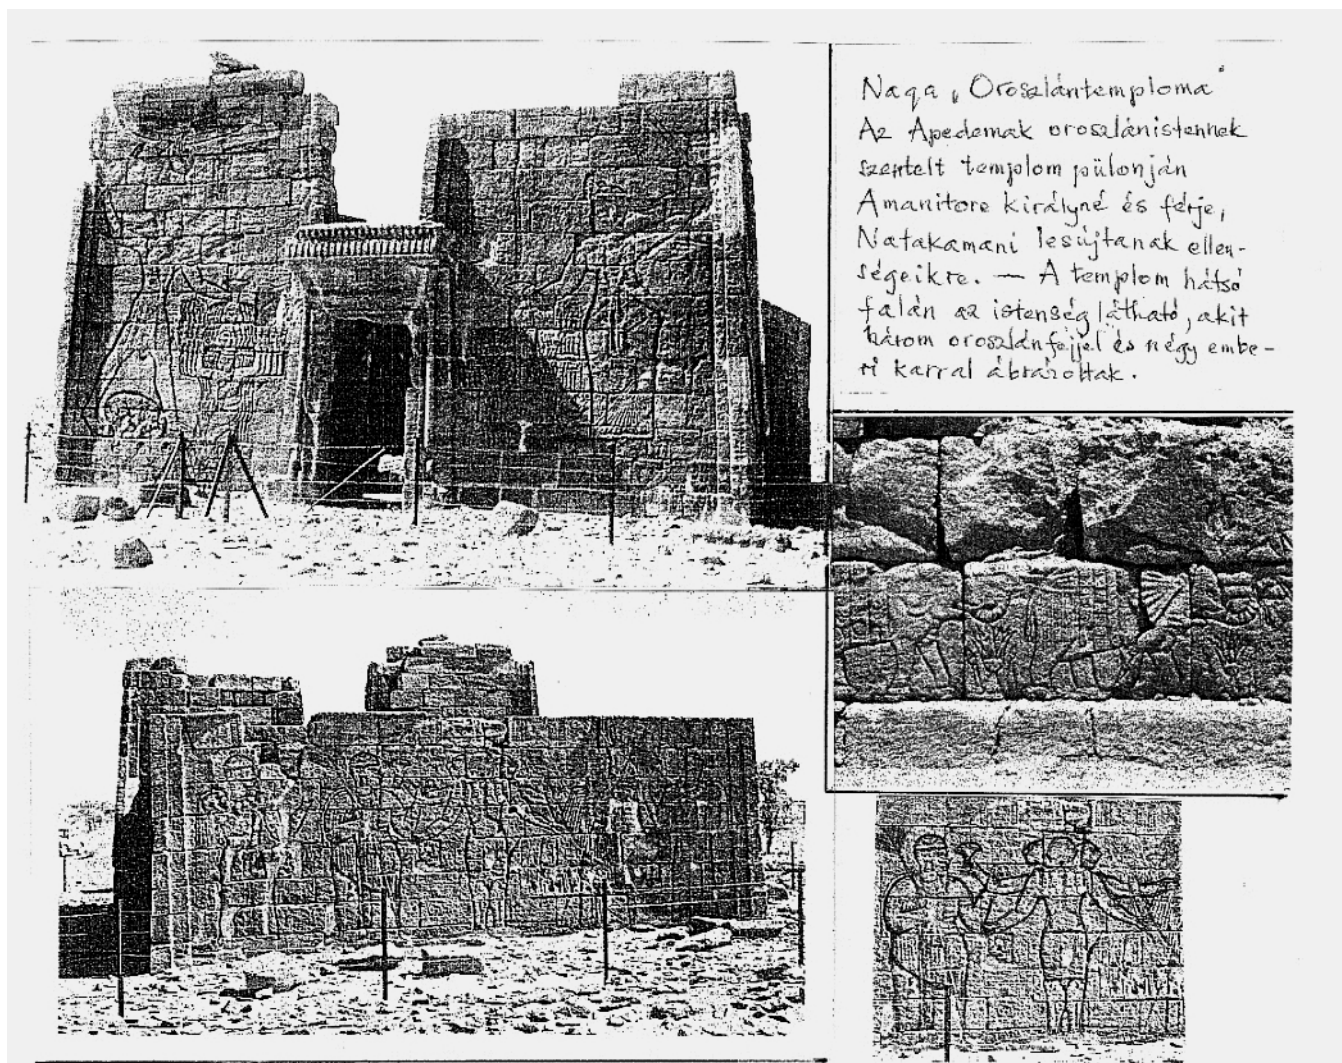 Naqa „Oroszlántemploma"
Az Apedemak oroszlánistennek
szentelt templom pülonján
Amanitore királyné és férje,
Natakamani lesújtanak ellen-
ségeikre. — A templom hátsó
falán az istenség látható, akit
három oroszlánfejjel és négy embe-
ri karral ábrázoltak.